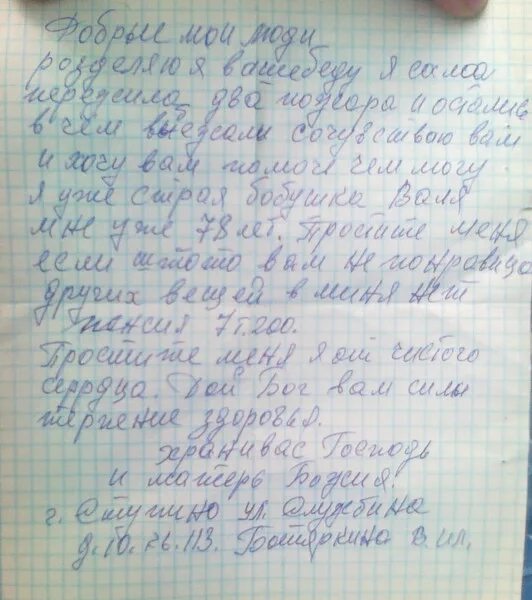 Добрые мои люди
розделяю я вашебеду я сама
пережила два пожара и остались
в чём выезсали сочувствою вам
и хочу вам помоч чем могу
я уже страя бобушка Валя
мне уже 78 лет. Простите меня
если штото вам не понравица
других вещей в миня нет
пансия 7т.200.
Простите меня я от чистого
сердца. Дай Бог вам силы
терпение здоровья.
хранивас Господь
и матерь Божия.
г. Ступино ул. Службина
д.10.кв.113. Батяркина В. ил.